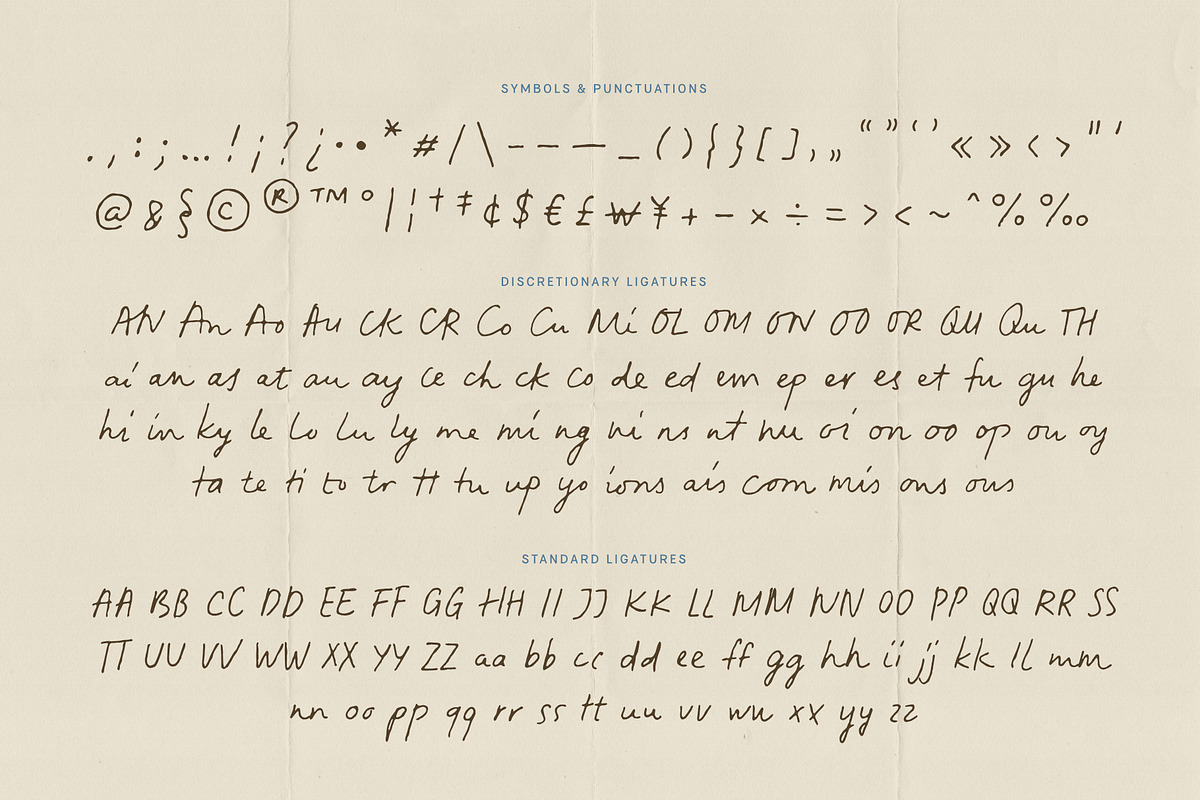 SYMBOLS & PUNCTUATIONS
. , : ; … ! ¡ ? ¿ · • * # / \ - – — _ ( ) { } [ ] ‚ „ “ ” ‘ ’ « » ‹ › " '
@ & § © ® ™ ° | ¦ † ‡ ¢ $ € £ ₩ ¥ + − × ÷ = > < ~ ^ % ‰
DISCRETIONARY LIGATURES
AN An Ao Au CK CR Co Cu Mi OL OM ON OO OR QU Qu TH
ai an as at au ay ce ch ck co de ed em ep er es et fu gu he
hi in ky le lo lu ly me mi ng ni ns nt nu oi on oo op ou oy
ta te ti to tr tt tu up yo ions ais com mis ons ous
STANDARD LIGATURES
AA BB CC DD EE FF GG HH II JJ KK LL MM NN OO PP QQ RR SS
TT UU VV WW XX YY ZZ aa bb cc dd ee ff gg hh ii jj kk ll mm
nn oo pp qq rr ss tt uu vv ww xx yy zz